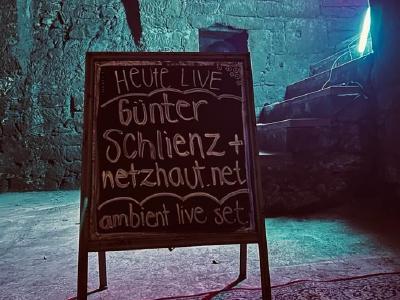 Heute LIVE
Günter
Schlienz +
netzhaut.net
ambient live set